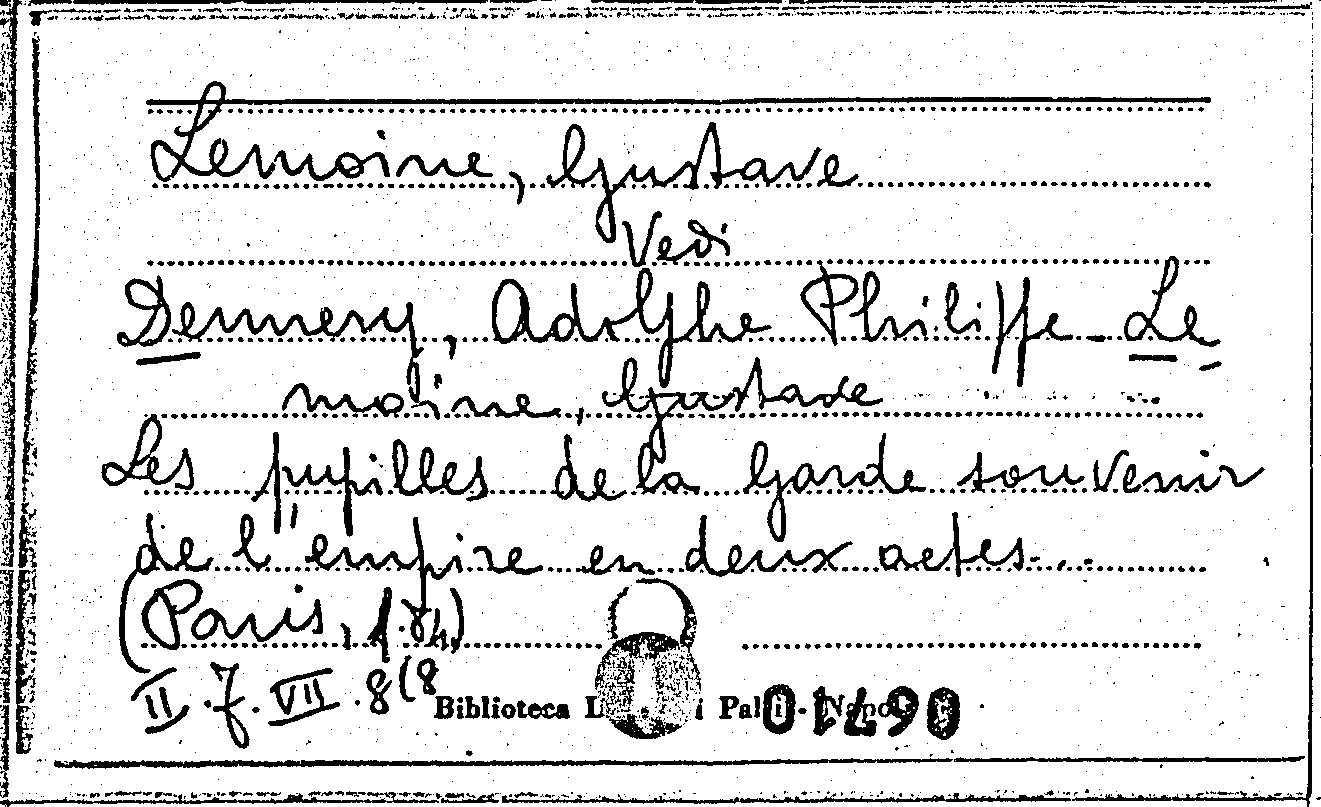 Lemoine, Gustave
Vedi
Dennery, Adolphe Philippe - Le
moine, Gustave
Les pupilles de la Garde souvenir
de l'empire en deux actes...
(Paris,
II. 7. VII. 8(8
Biblioteca
06710